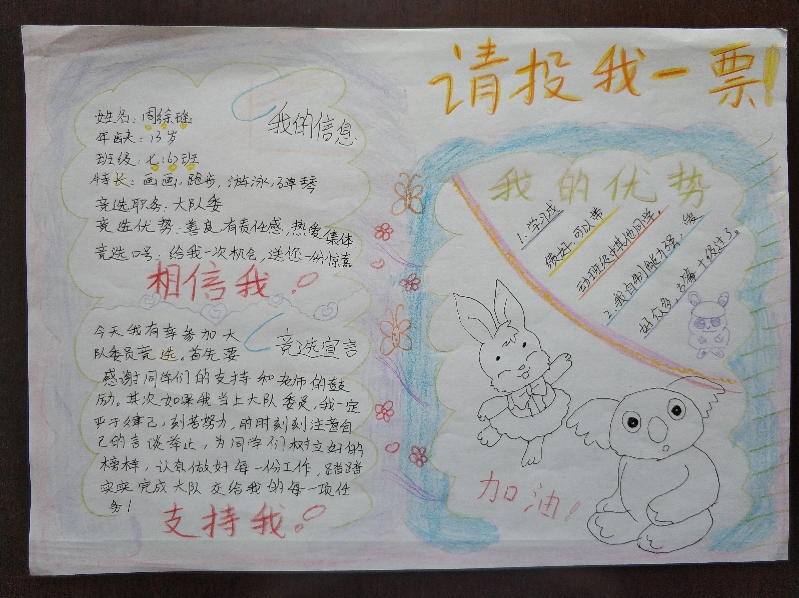 请投我一票!
我的信息
姓名:周徐璐
年龄:13岁
班级:七(6)班
特长:画画,跑步,游泳,弹琴
竞选职务:大队委
竞选优势:善良,有责任感,热爱集体
竞选口号:给我一次机会,送您一份惊喜
相信我!
竞选宣言
今天我有幸参加大
队委员竞选,首先要
感谢同学们的支持和老师的鼓
励。其次如果我当上大队委员,我一定
严于律己,刻苦努力,时时刻刻注意自
己的言谈举止,为同学们树立好的
榜样,认真做好每一份工作,踏踏
实实完成大队交给我的每一项任
务!
支持我!
我的优势
1.学习成
绩好,可以带
动班级中其他同学。
2.我自制能力强,
加油!